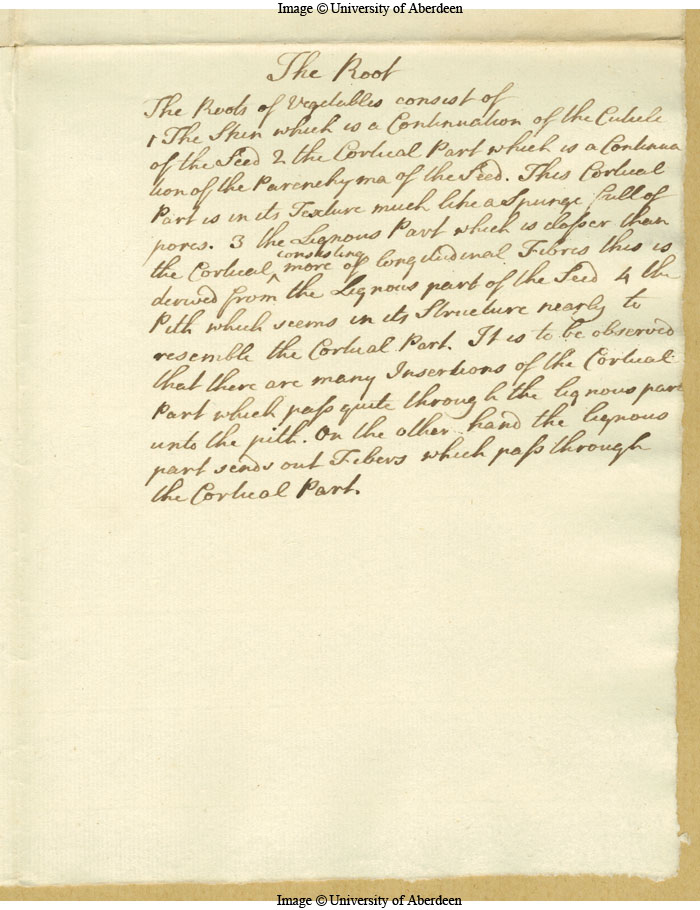 Image © University of Aberdeen
The Root
The Roots of Vegetables consist of
1 The Skin which is a Continuation of the Cuticle
of the Seed 2 the Cortical Part which is a Continua
tion of the Parenchyma of the Seed. This Cortical
Part is in its Texture much like a Spunge full of
pores. 3 the Lignous Part which is closser than
consisting
the Cortical ^ more of longitudinal Fibres this is
derived from the Lignous part of the Seed 4 the
Pith which seems in its Structure nearly to
resemble the Cortical Part. It is to be observed
that there are many Insertions of the Cortical
Part which pass quite through the lignous part
unto the pith. On the other hand the lignous
part sends out Fibers which pass through
the Cortical Part.
Image © University of Aberdeen